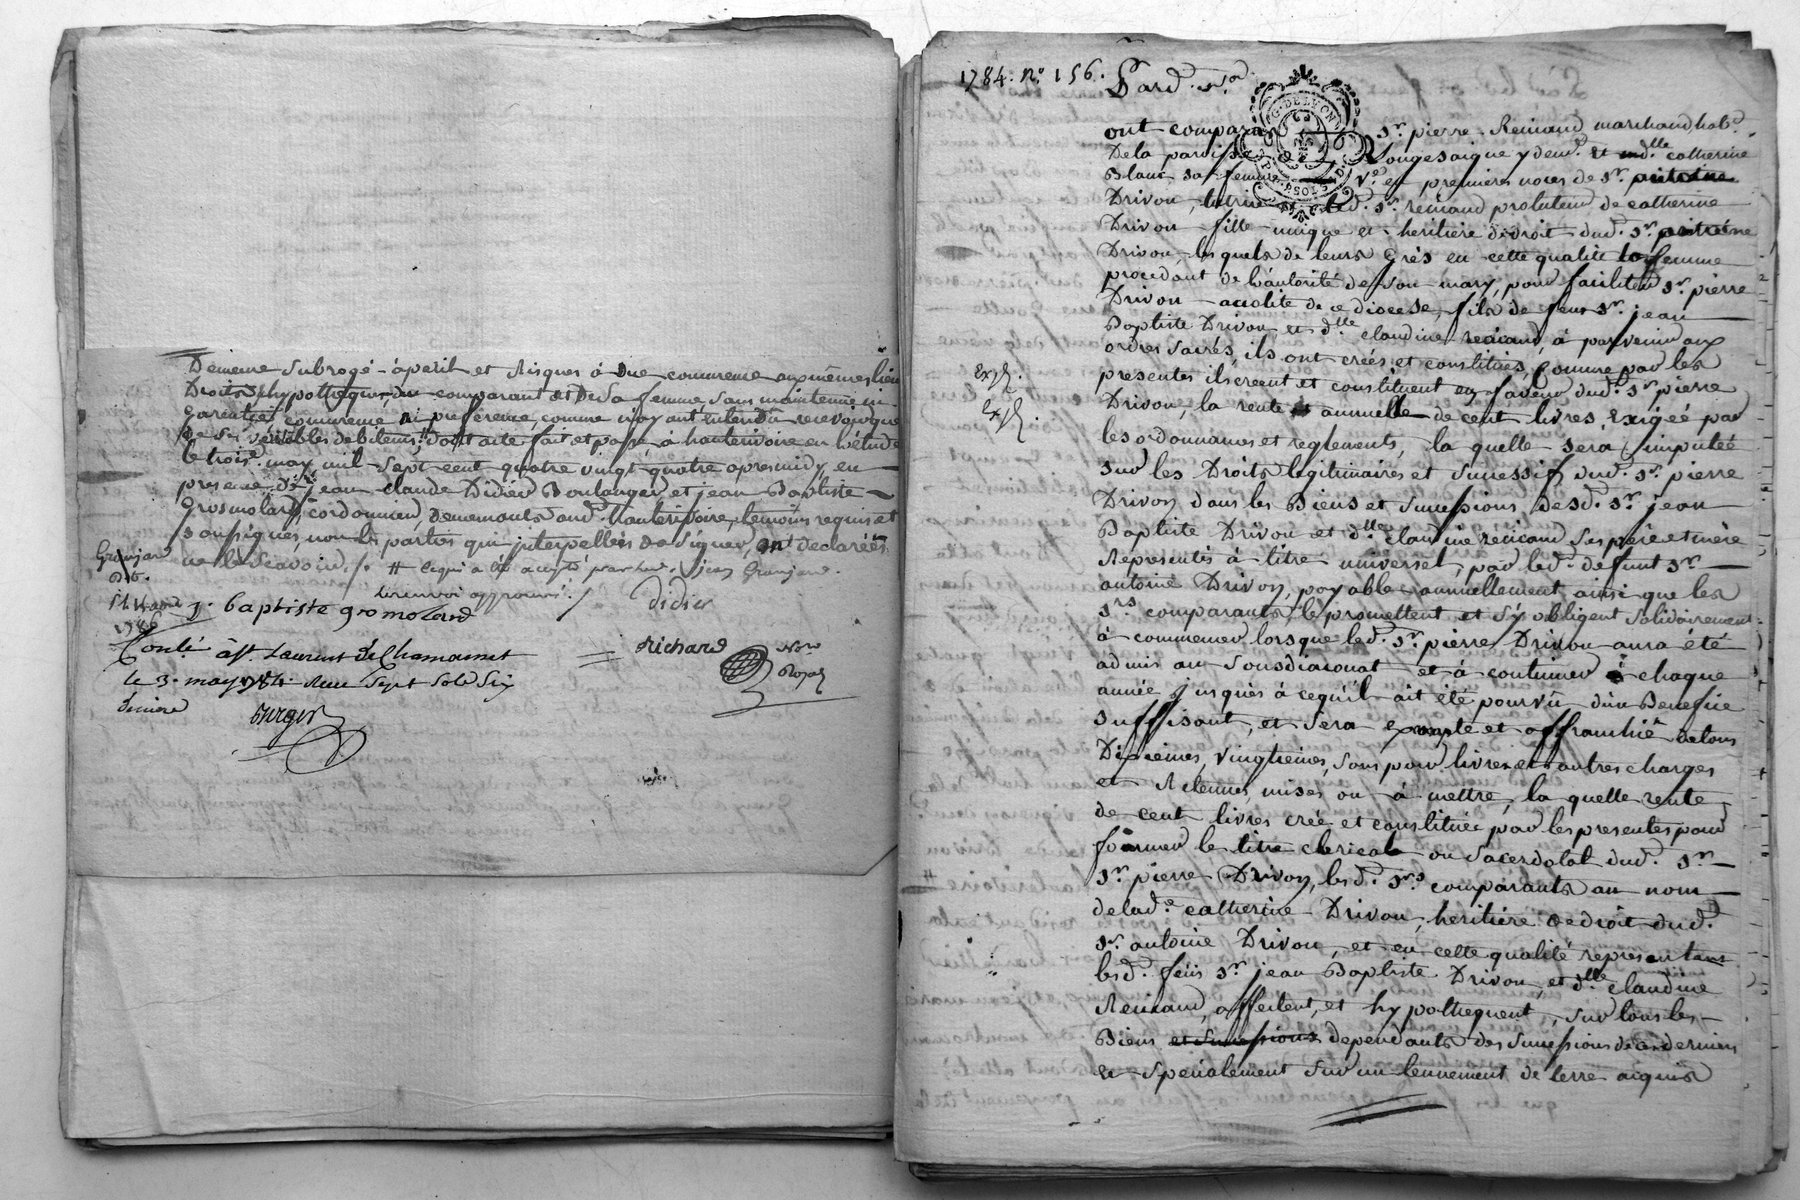 Demeure subrogé à peril et risques à que commreme aux mêmes lieu
Droits hypotheques, du comparant et de sa femme sans maintenue ni
garentie, commreme ni preference, comme n'ayant entendu recevoir que
de ses veritables debiteurs, # dont acte fait et passé, a hauterivoire en l'étude
le trois.e may mil sept cent quatre vingt quatre apres midy en
presence de s.r jean claude Didier Boulanger, et jean Baptiste
Grosmolard, cordonnier, demeurants aud. hauterivoire, temoins requis et
soussignés, non les parties qui interpellées de signer, ont declarées
ne le scavoir /. # ce qui a été accepté par led. s.r jean Granjard.
le renvoi approuvé. /
Granjard
j. baptiste gromolard
didier
1786
Contr.lé à S.t Laurent de Chamousset
le 3. may 1784. Reçu sept sols six
deniers
Richard
No.re
Royal
1784. n.o 156.
Pard. n.re
G. DE LYON
ont comparu s.r pierre Reinaud marchand hab.
De la paroisse de Longesaigne y dem.t et d.lle catherine
Blanc sa femme v.e en premieres noces de s.r antoine
Drivon, tutrice led. s.r reinaud protuteur de catherine
Drivon fille unique et heritiere de droit dud. s.r antoine
Drivon, lesquels de leurs Grés en cette qualité la femme
procedant de l'autorité de son mary, pour faciliter s.r pierre
Drivon acolite de ce diocese, fils de feus s.r jean
Baptiste Drivon, et d.lle claudine reinaud, à parvenir aux
ordres sacrés, ils ont créés et constitués, comme par les
presentes ils creent et constituent en faveur dud. s.r pierre
Drivon, la rente annuelle de cent livres, exigée par
les ordonnances et reglements, la quelle sera imputée
sur les Droits legitimaires et successifs dud. s.r pierre
Drivon dans les Biens et successions desd. s.r jean
Baptiste Drivon et d.lle claudine reinaud ses père et mère
representés à titre universel, par led. defunt s.r
antoine Drivon, payable annuellement ainsi que les
s.rs comparants, le promettent et s'y obligent solidairement
à commencer lorsque led. s.r pierre Drivon aura été
admis au sousdiaconat et à continuer à chaque
année jusqu'à ce qu'il ait été pourvû d'un Benefice
suffisant, et sera exempte et affranchie de tous
Dixiemes, vingtiemes, sous pour livres et autres charges
et retenues, mises ou à mettre, la quelle rente
de cent livres creé et constituée par les presentes pour
former le titre clerical ou sacerdotal dud. s.r
s.r pierre Drivon, lesd. s.rs comparants au nom
de lad.e catherine Drivon, heritiere de droit dud.
s.r antoine Drivon, et en cette qualité representant
lesd. feüs s.r jean Baptiste Drivon, et d.lle claudine
Reinaud, affectent, et hypothequent, sur tous les
Biens et successions dependants des successions de ces derniers
et specialement sur un tennement de terre acquis
Exp.
Exp.